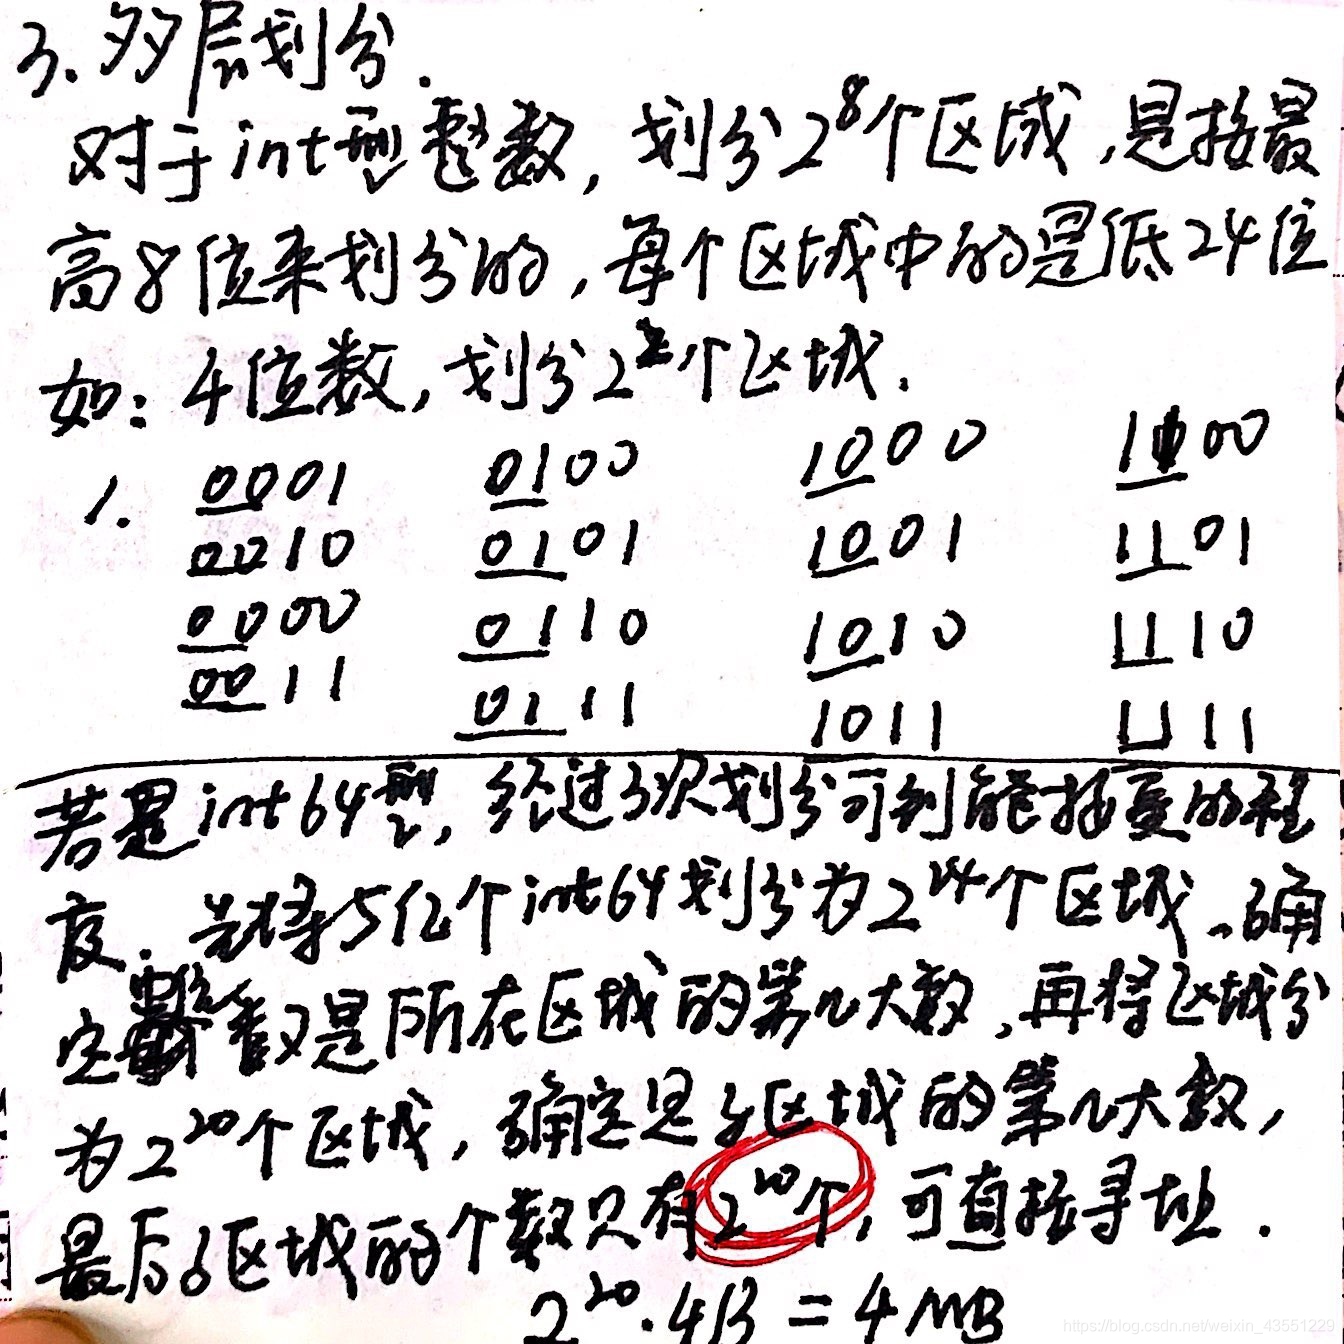 3. 多层划分.
对于int型整数, 划分2⁸个区域, 是按最
高8位来划分的, 每个区域中的是低24位
如: 4位数, 划分2²个区域.
1. 0001 0100 1000 1100
0010 0101 1001 1101
0000 0110 1010 1110
0011 0111 1011 1111
若是int64型, 经过3次划分可到能接受的程
度. 先将5亿个int64划分为2²⁴个区域, 确
定中位数是所在区域的第几大数, 再将区域分
为2²⁰个区域, 确定是子区域的第几大数,
最后子区域的个数只有2²⁰个, 可直接寻址.
2²⁰·4B = 4MB
https://blog.csdn.net/weixin_43551229